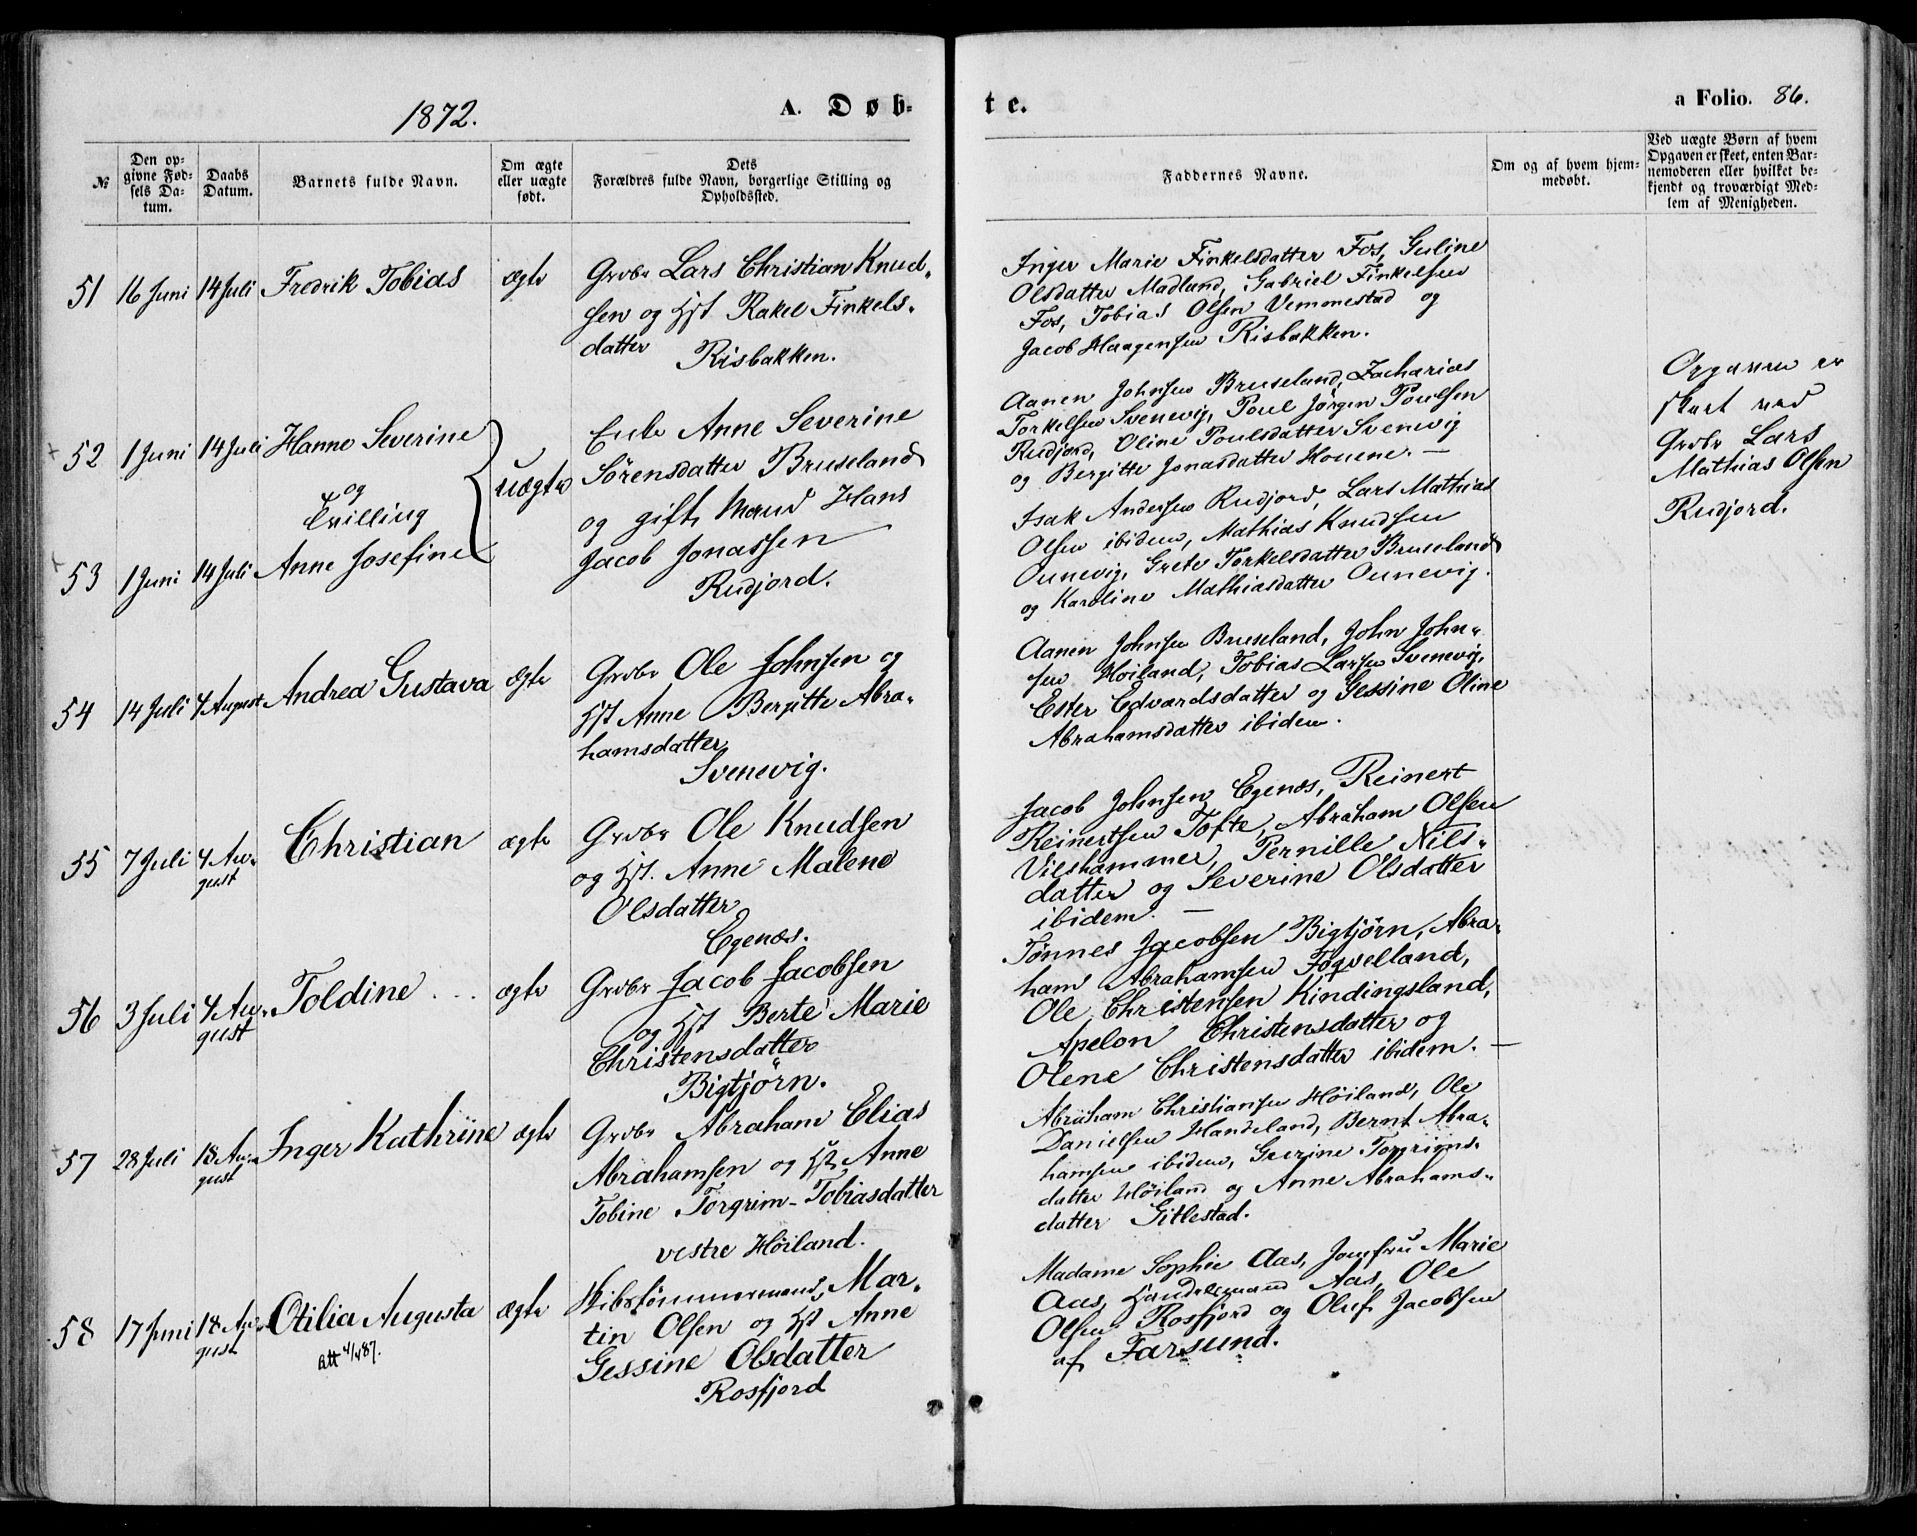 1872.
A. Døb-
te.
a Folio. 86.
№
Den op-
givne Fød-
sels Da-
tum.
Daabs
Datum.
Barnets fulde Navn.
Om ægte
eller uægte
født.
Dets
Forældres fulde Navn, borgerlige Stilling og
Opholdssted.
Faddernes Navne.
Om og af hvem hjem-
medøbt.
Ved uægte Børn af hvem
Opgaven er skeet, enten Bar-
nemoderen eller hvilket be-
kjendt og troværdigt Med-
lem af Menigheden.
51 16 Juni 14 Juli Fredrik Tobias ægte
Grdbr Lars Christian Knud-
sen og Hst Rakel Finkels-
datter
Risbakken.
Inger Marie Finkelsdatter Fos, Guline
Olsdatter Madland, Gabriel Finkelsen
Fos, Tobias Olsen Vemmestad og
Jacob Haagensen Risbakken.
52 1 Juni 14 Juli Hanne Severine
og
Tvilling
53 1 Juni 14 Juli Anne Josefine
uægte
Enke Anne Severine
Sørensdatter Bruseland
og gift Mand Hans
Jacob Jonassen
Rudjord.
Aanen Johnsen Bruseland, Zacharias
Torkelsen Svenevig, Poul Jørgen Poulsen
Rudjord, Oline Poulsdatter Svenevig
og Bergitte Jonasdatter Houene. —
Isak Andersen Rudjord, Lars Mathias
Olsen ibidem, Mathias Knudsen
Ounevig, Grete Torkelsdatter Bruseland
og Karoline Mathiasdatter Ounevig.
Opgaven er
skeet ved
Grdbr Lars
Mathias Olsen
Rudjord.
54 14 Juli 4 August Andrea Gustava ægte
Grdbr Ole Johnsen og
Hst Anne Bergitte Abra-
hamsdatter
Svenevig.
Aanen Johnsen Bruseland, John John-
sen Høiland, Tobias Larsen Svenevig,
Ester Edvardsdatter og Gessine Oline
Abrahamsdatter ibidem.
55 7 Juli 4 Au-
gust
Christian ægte
Grdbr Ole Knudsen
og Hst. Anne Malene
Olsdatter
Egenæs.
Jacob Johnsen Egenæs, Reinert
Reinertsen Tofte, Abraham Olsen
Vilshammer, Pernille Nils-
datter og Severine Olsdatter
ibidem. —
56 3 Juli 4 Au-
gust
Toldine ægte
Grdbr Jacob Jacobsen
og Hst Berte Marie
Christensdatter
Bigtjørn.
Tønnes Jacobsen Bigtjørn, Abra-
ham Abrahamsen Fogvelland,
Ole Christensen Kindingsland,
Apelon Christensdatter og
Olene Christensdatter ibidem. —
57 28 Juli 18 Au-
gust
Inger Kathrine ægte
Grdbr Abraham Elias
Abrahamsen og Hst Anne
Tobine Torgrim-Tobiasdatter
vestre Høiland.
Abraham Christiansen Høiland, Ole
Danielsen Handeland, Bernt Abra-
hamsen ibidem, Gurine Torgrims-
datter Høiland og Anne Abrahams-
datter Gitlestad.
58 17 Juni 18 Au-
gust
Otilia Augusta ægte
Att 4/1 87.
Skibstømmermand, Mar-
tin Olsen og Hst Anne
Gessine Olsdatter
Rosfjord
Madame Sophie Aas, Jomfru Marie
Aas, Handelsmand Aas, Ole
Olsen Rosfjord og Oluf Jacobsen
af Farsund.